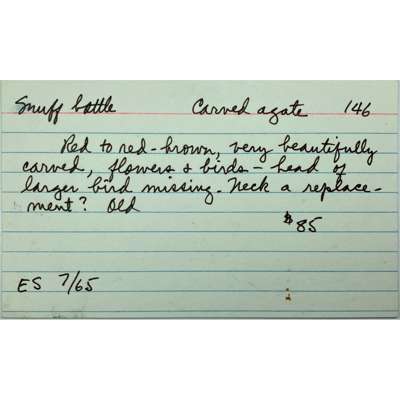 Snuff bottle Carved agate 146
Red to red-brown, very beautifully
carved, flowers & birds - head of
larger bird missing. Neck a replace-
ment? Old
$85
ES 7/65